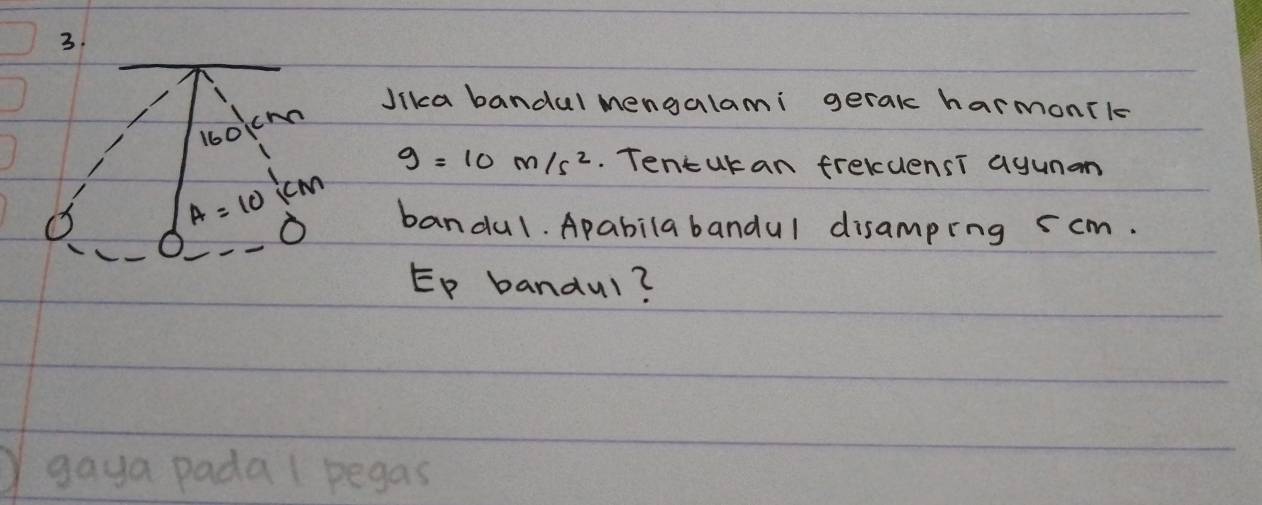 3.
160 cm
A = 10 cm
Jika bandul mengalami gerak harmonik
g = 10 m/s². Tentukan frekuensi ayunan
bandul. Apabila bandul disamping 5 cm.
Ep bandul?
gaya pada 1 pegas